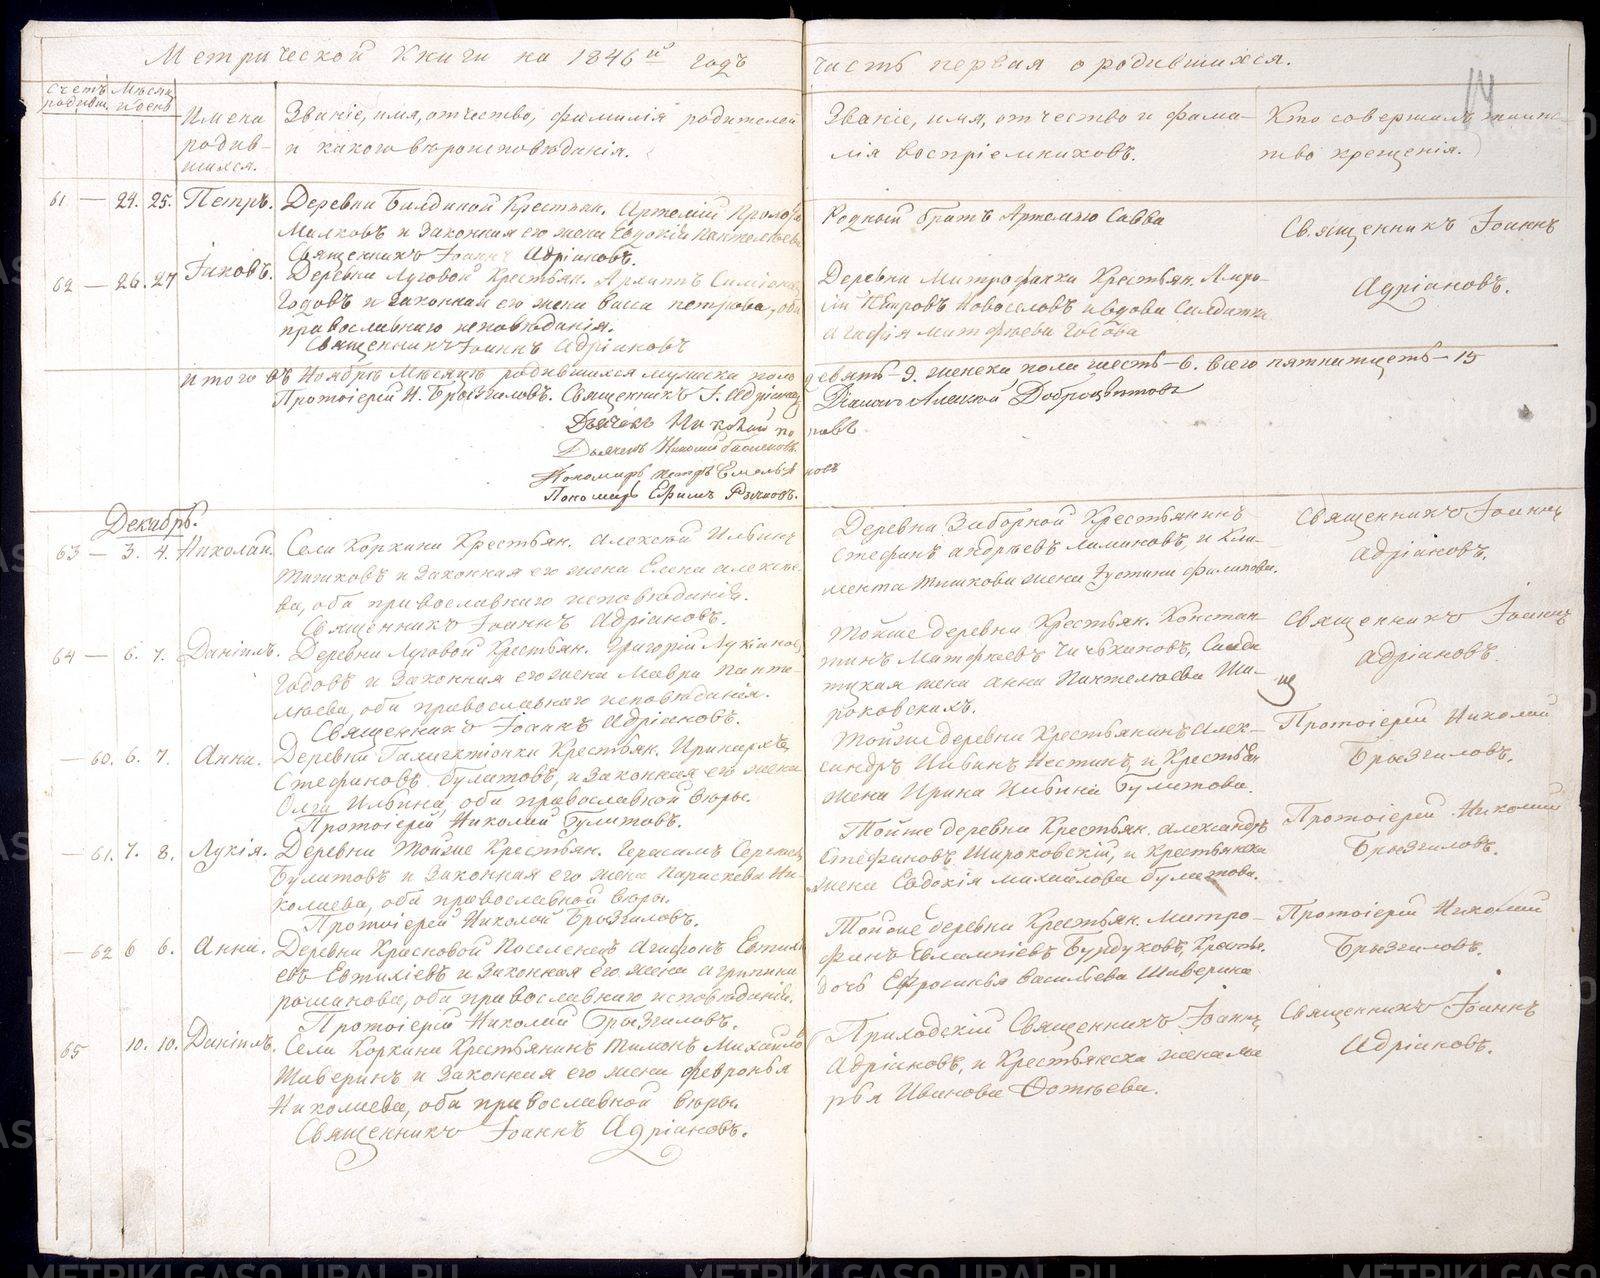 Метрической Книги на 1846й годъ
часть первая о родившихся.
14
Счетъ родивш.
Мѣсяц. и день
Имена родив-
шихся.
Званіе, имя, отчество, фамилія родителей
и какого вѣроисповѣданія.
Званіе, имя, отчество и фами-
лія воспріемниковъ.
Кто совершилъ таинс-
тво крещенія.
61 — 24. 25. Петръ.
Деревни Балдиной Крестьян. Артемій
Малковъ и законная его жена Евдокія Пантелеева
Священникъ Іоаннъ Адріановъ.
Родный братъ Артемію Савва
Священникъ Іоаннъ
Адріановъ.
62 — 26. 27 Іаковъ.
Деревни Луговой Крестьян.
Годовъ и законная его жена Васса петрова, оба
православнаго исповѣданія.
Священникъ Іоаннъ Адріановъ
Деревни Митрофанки Крестьян.
Петровъ Новоселовъ и вдова Салдатка
агафія матфѣева Госова
итого въ Ноябрѣ Мѣсяцѣ родившихся мужеска пола девять — 9. женска пола шесть — 6. всего пятнатцеть — 15
Протоіерей Н. Брызгаловъ. Священникъ І. Адріановъ
Діаконъ Алексѣй Доброцвѣтовъ
Дьячекъ Николай поповъ
Дьячекъ Николай
Пономарь петръ Емельяновъ
Пономарь Ефимъ Рычковъ.
Декабрь.
63 — 3. 4. Николай.
Села Коркина Крестьян. Алексѣй Ильинъ
Тишковъ и законная его жена Елена алексѣе-
ва, оба православнаго исповѣданія.
Священникъ Іоаннъ Адріановъ.
Деревни Заборной Крестьянинъ
Стефанъ андреевъ Лимановъ, и Кли-
мента Тишкова жена Іустина филипова.
Священникъ Іоаннъ
Адріановъ.
64 — 6. 7. Даніилъ.
Деревни Луговой Крестьян. Григорій Лукіановъ
Годовъ и законная его жена Мавра Панте-
леева, оба православнаго исповѣданія.
Священникъ Іоаннъ Адріановъ.
Тойже деревни Крестьян. Констан-
тинъ Матфѣевъ Салда
тская жена анна Пантелеева Ши-
роковскихъ.
Священникъ Іоаннъ
Адріановъ.
— 60. 6. 7. Анна.
Деревни Крестьян. Иринархъ
Стефановъ Булатовъ, и законная его жена
Олга Ильина, оба православной вѣры.
Протоіерей Николай Булатовъ.
Тойже деревни Крестьянинъ Алек-
сандръ Ивановъ и Крестьян
жена Ирина Ильина Булатова.
Протоіерей Николай
Брызгаловъ.
— 61. 7. 8. Лукія.
Деревни Тойже Крестьян. Герасимъ Сергѣевъ
Булатовъ и законная его жена Параскева Ни-
колаева, оба православной вѣры.
Протоіерей Николай Брызгаловъ.
Тойже деревни Крестьян. александръ
Стефановъ Широковскій, и Крестьянска
жена Евдокія михайлова булатова.
Протоіерей Николай
Брызгаловъ.
— 62 6 6. Анна.
Деревни Красновой Поселенецъ Агафонъ
Евтихіевъ и законная его жена агрипина
романова, оба православнаго исповѣданія.
Протоіерей Николай Брызгаловъ.
Тойже деревни Крестьян. Митро-
фанъ Евлампіевъ Бурдуковъ, Крестьян.
дочь Ефросинья Васильева Шаверина
Протоіерей Николай
Брызгаловъ.
65 10. 10. Даніилъ.
Села Коркина Крестьянинъ Тимонъ Михайловъ
Шаверинъ и законная его жена февронья
Николаева, оба православной вѣры.
Священникъ Іоаннъ Адріановъ.
Приходскій Священникъ Іоаннъ
Адріановъ, и Крестьянска жена ма
рья Иванова Фотѣева.
Священникъ Іоаннъ
Адріановъ.
METRIKI.GASO-URAL.RU